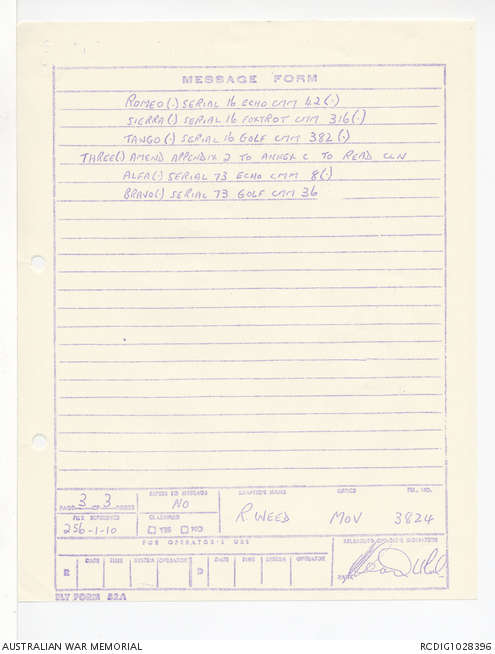 MESSAGE FORM
ROMEO(.) SERIAL 16 ECHO CMM 42(.)
SIERRA(.) SERIAL 16 FOXTROT CMM 316(.)
TANGO(.) SERIAL 16 GOLF CMM 382(.)
THREE(.) AMEND APPENDIX 2 TO ANNEX C TO READ CLN
ALFA(.) SERIAL 73 ECHO CMM 8(.)
BRAVO(.) SERIAL 73 GOLF CMM 36
PAGE 3 OF 3 PAGES
REFERS TO MESSAGE
NO
DRAFTER'S NAME
R WEED
OFFICE
MOV
TEL. NO.
3824
FILE REFERENCE
256-1-10
CLASSIFIED
YES NO
FOR OPERATOR'S USE
RELEASING OFFICER'S SIGNATURE
R
DATE TIME SYSTEM OPERATOR
D
DATE TIME SYSTEM OPERATOR
RANK
FORM 52A
AUSTRALIAN WAR MEMORIAL
RCDIG1028396